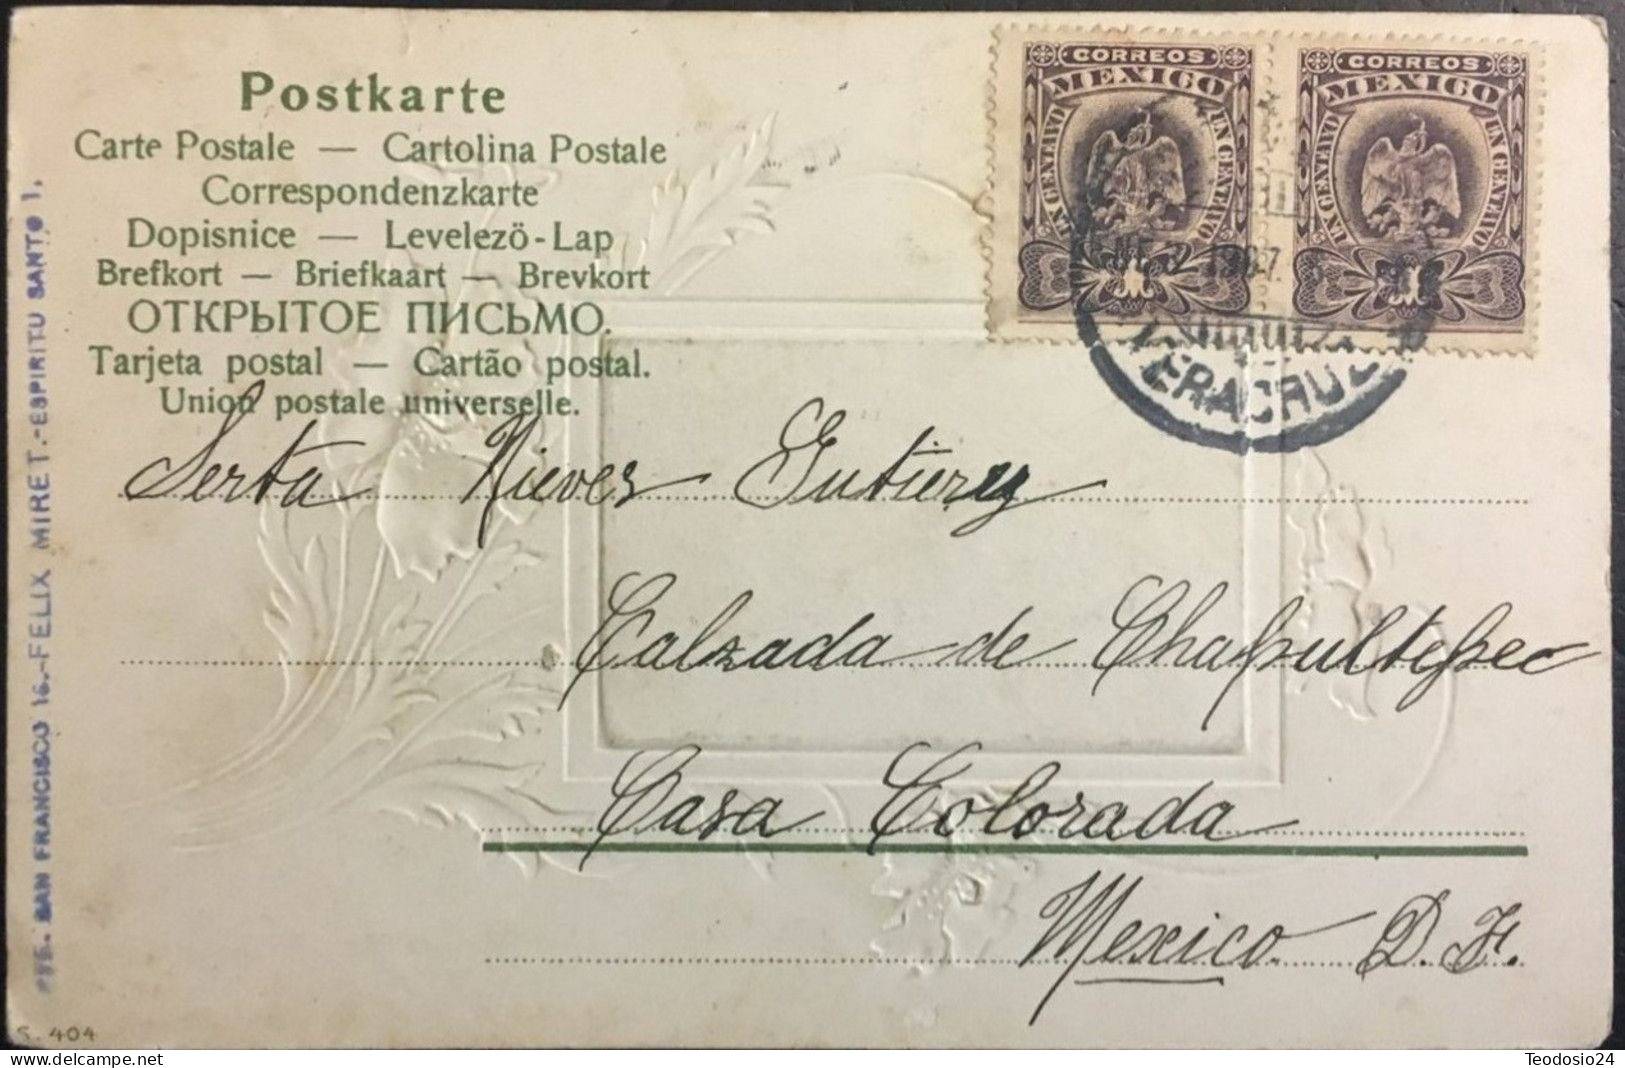 Postkarte
Carte Postale — Cartolina Postale
Correspondenzkarte
Dopisnice — Levelezö-Lap
Brefkort — Briefkaart — Brevkort
ОТКРЫТОЕ ПИСЬМО.
Tarjeta postal — Cartão postal.
Union postale universelle.
CORREOS
MEXICO
UN CENTAVO
UN CENTAVO
1
CORREOS
MEXICO
UN CENTAVO
UN CENTAVO
1
1907
VERACRUZ
Serta Nieves Gutierrez
Calzada de Chapultepec
Casa Colorada
Mexico D. F.
SAN FRANCISCO 16.-FELIX MIRET.-ESPIRITU SANTO 1.
S. 404
Teodosio24